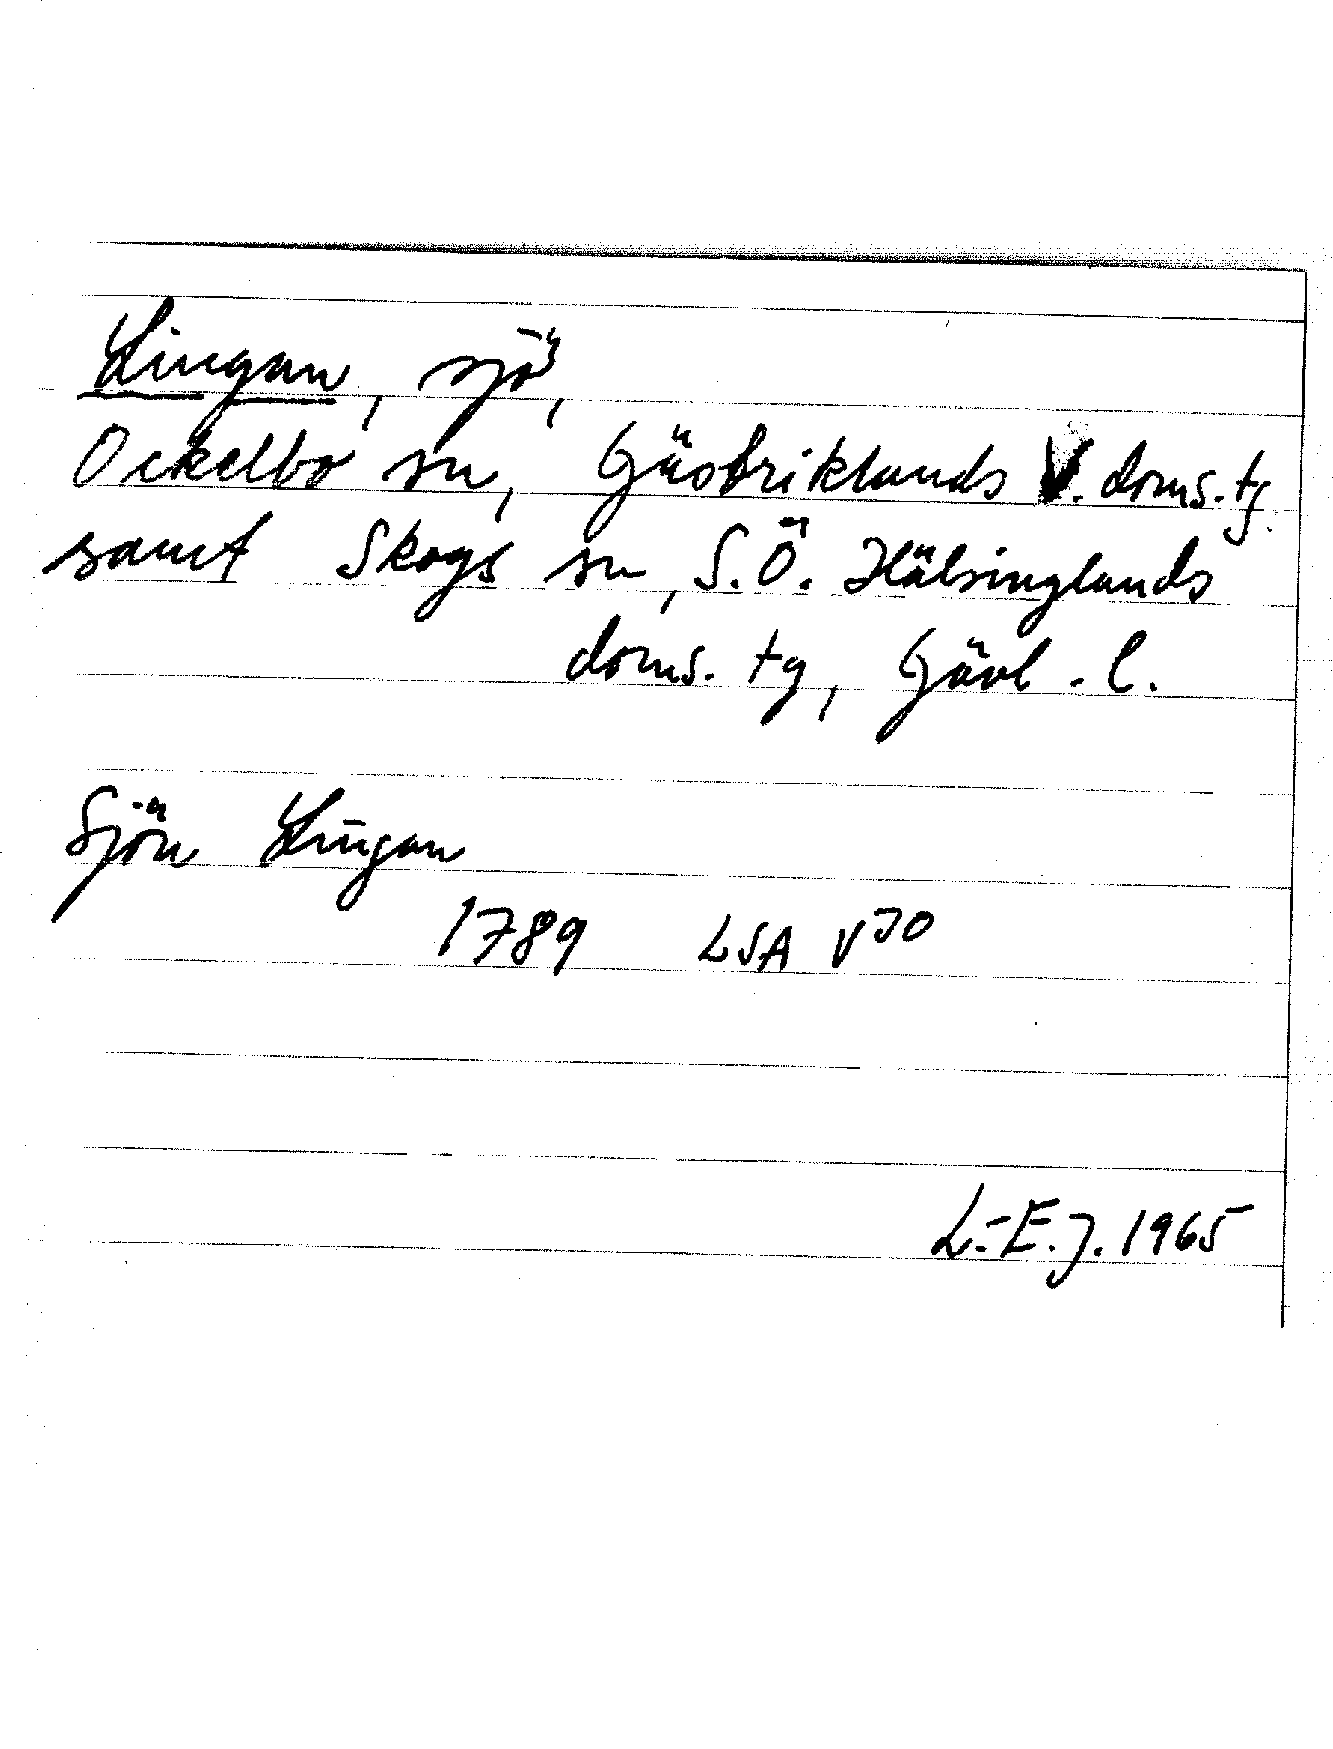 Lingan, sjö,
Ockelbo sn, Gästriklands V. doms. tg.
samt Skogs sn, S.Ö. Hälsinglands
doms. tg, Gävl. l.
Sjön Lingan
1789 LSA V 30
L.-E. J. 1965